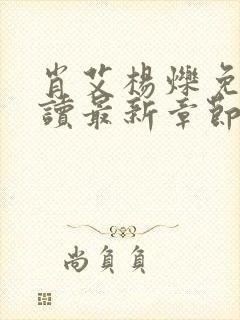 肖艾楊爍免
讀最新章節
尚負負